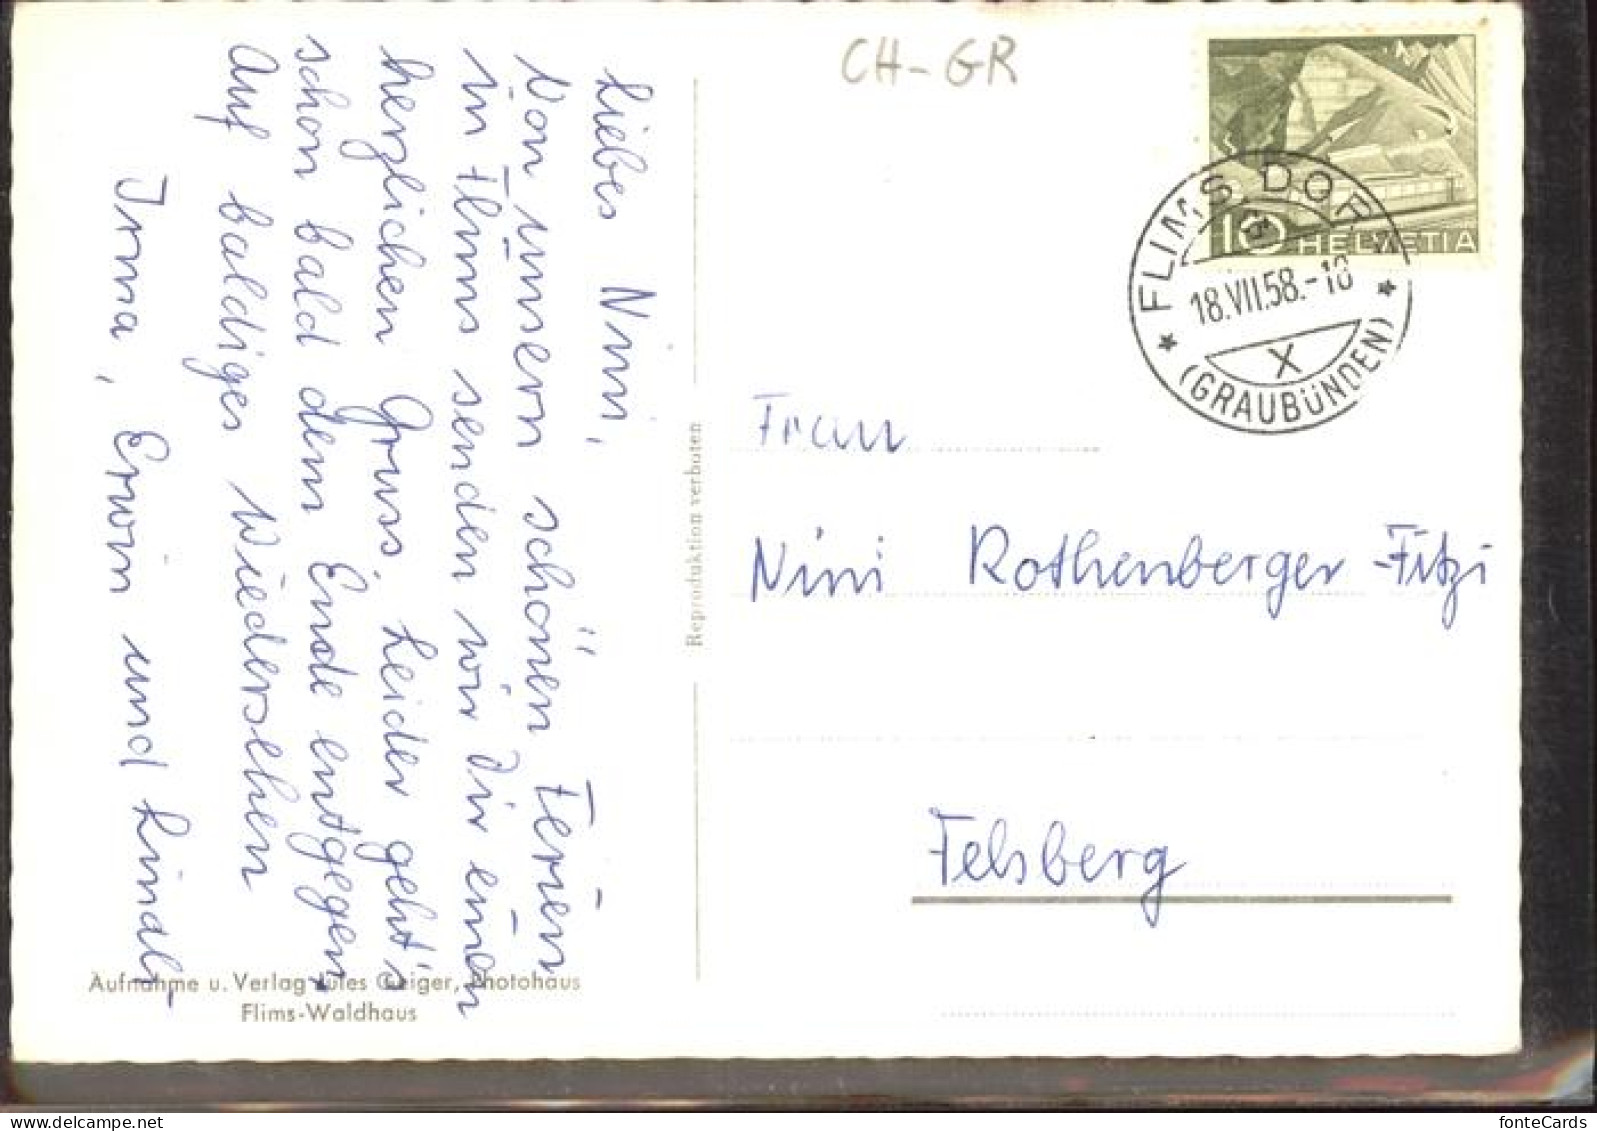 CH-GR
HELVETIA
10
FLIMS DORF
18.VII.58.-18
X
(GRAUBÜNDEN)
Liebes Nini,
Von unsern schönen Ferien
in Flims senden wir Dir einen
herzlichen Gruss. Leider geht's
schon bald dem Ende entgegen.
Auf baldiges Wiedersehen
Irma, Erwin und
Reproduktion verboten
Frau
Nini Rothenberger-Fitzi
Felsberg
Aufnahme u. Verlag Jules Geiger, Photohaus
Flims-Waldhaus
fonteCards